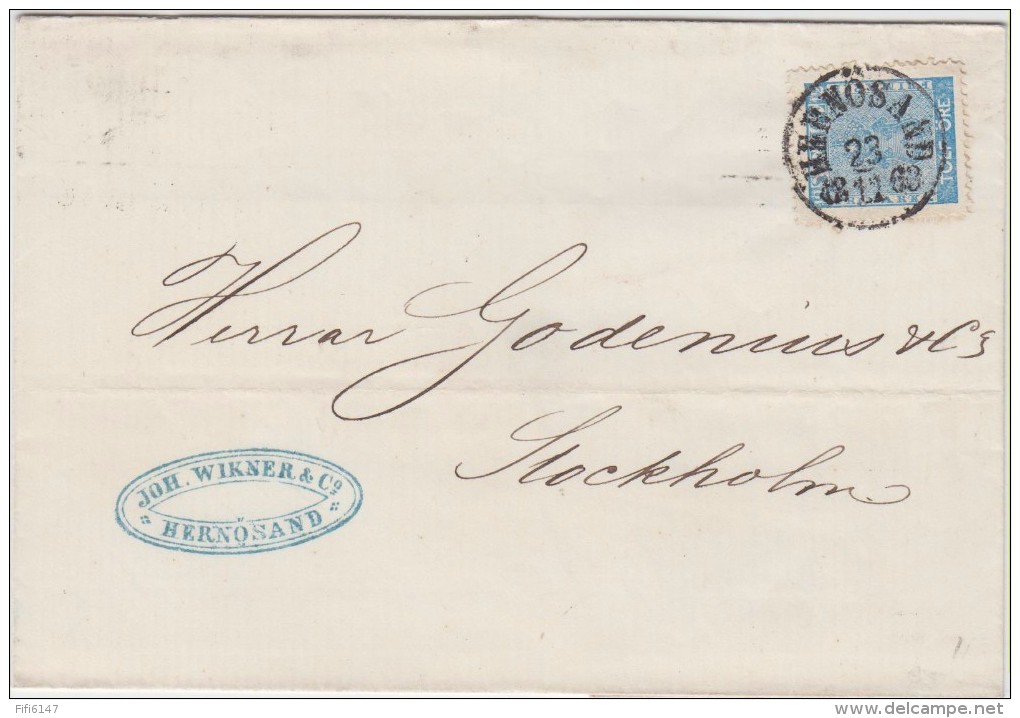 HERNÖSAND
23
18 11 68
TOLF ÖRE
FRIMÄRKE
Herrar Godenius & Co
Stockholm
JOH. WIKNER & Co
HERNÖSAND
Fifi6147
www.delcampe.net